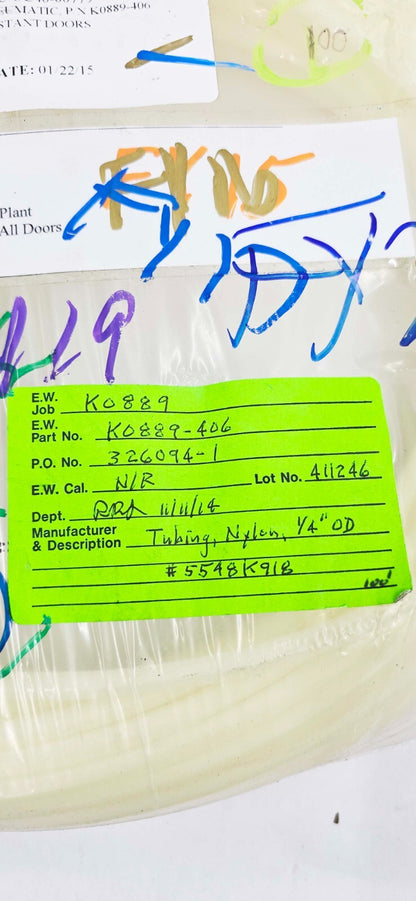 EUMATIC, P/N K0889-406
STANT DOORS
ATE: 01-22/15
100
Plant
All Doors
FY
19
E.W. Job K0889
E.W. Part No. K0889-406
P.O. No. 326094-1
E.W. Cal. N/R Lot No. 411246
Dept. 11/11/14
Manufacturer & Description Tubing, Nylon, 1/4" OD
#5548K91B
100'